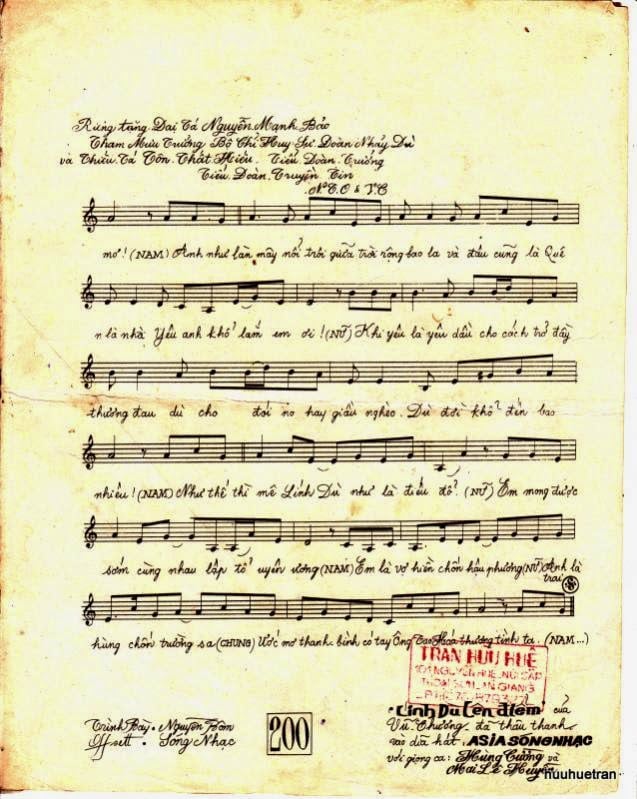 Riêng tặng Đại Tá Nguyễn Mạnh Bảo
Tham Mưu Trưởng Bộ Chỉ Huy Sư Đoàn Nhảy Dù
và Thiếu Tá Tôn Thất Hiếu. Tiểu Đoàn Trưởng
Tiểu Đoàn Truyền Tin
mơ! (NAM) Anh như làn mây nổi trôi giữa trời rộng bao la và đâu cũng là Quê
n là nhà Yêu anh khổ lắm em ơi! (NỮ) Khi yêu là yêu dầu cho cách trở đầy
thương đau dù cho đói no hay giầu nghèo. Dù đời khổ đến bao
nhiêu! (NAM) Như thế thì mê Lính Dù như là điếu đổ. (NỮ) Em mong được
sớm cùng nhau lập tổ uyên ương (NAM) Em là vợ hiền chốn hậu phương (NỮ) Anh là
trai
hùng chốn trường sa (CHUNG) Ước mơ thanh bình có tay Ông Tơ Hoá thương tình ta. (NAM...)
TRẦN HỮU HUỆ
Trình Bày • Nguyên
Offsett • Sóng Nhạc
200
"Lính Dù Lên điểm" của
Vũ Chương đã thâu thanh
vào dĩa hát ASIA SÓNGNHẠC
với giọng ca: Hùng Cường và
Mai Lệ Huyền
huuhuetran